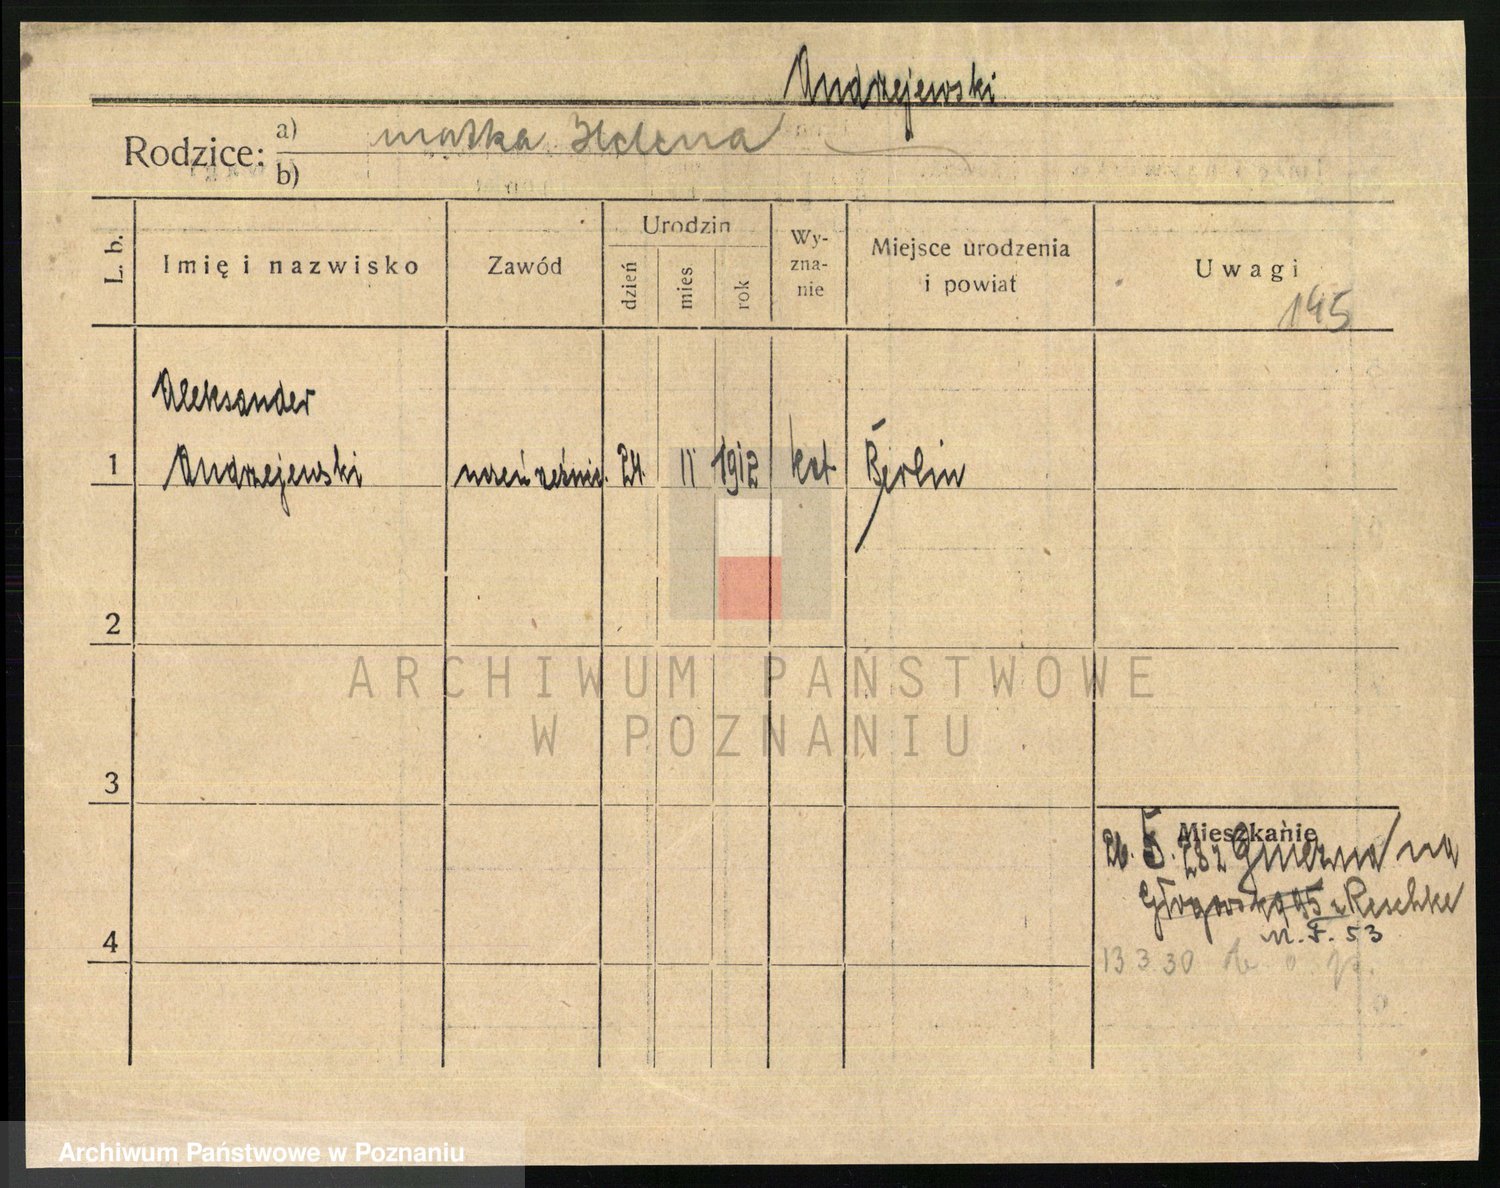 Andrzejewski
Rodzice: a) matka Helena
b)
L. b.
Imię i nazwisko
Zawód
Urodzin
dzień
mies
rok
Wy-
zna-
nie
Miejsce urodzenia
i powiat
Uwagi
145
Aleksander
1 Andrzejewski uczeń rzeźnic. 24. II 1912 kat Berlin
2
3
4
Mieszkanie
26. 5. 28 z Gniezna na
Głogowska 95 u Reschke
M. F. 53
13 3.30
ARCHIWUM PAŃSTWOWE
W POZNANIU
Archiwum Państwowe w Poznaniu